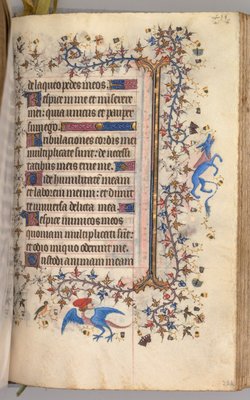 de laqueo pedes meos.
Respice in me et miserere
mei: quia unicus et pauper
sum ego.
Tribulaciones cordis mei
multiplicate sunt: de necessi
tatibus meis erue me.
Vide humilitatē meam
et laborem meum: et dimitt
e universa delicta mea.
Respice inimicos meos
quoniam multiplicati sūt:
et odio iniquo oderunt me.
Custodi animam meam